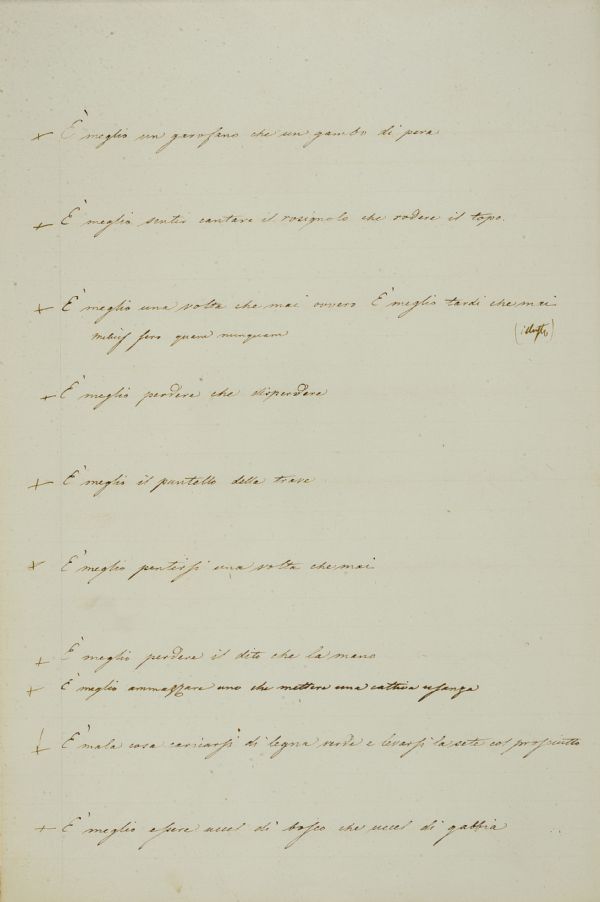 + È meglio un garofano che un gambo di pera
+ È meglio sentir cantare il rosignolo che rodere il topo.
+ È meglio una volta che mai ovvero È meglio tardi che mai
sero quam nunquam
+ È meglio perdere che disperdere
+ È meglio il puntello della trave
+ È meglio pentirsi una volta che mai
+ È meglio perdere il dito che la mano
+ È meglio ammazzare uno che mettere una cattiva usanza
+ È mala cosa caricarsi di legna verde e levarsi la sete col prosciutto
+ È meglio essere uccel di bosco che uccel di gabbia